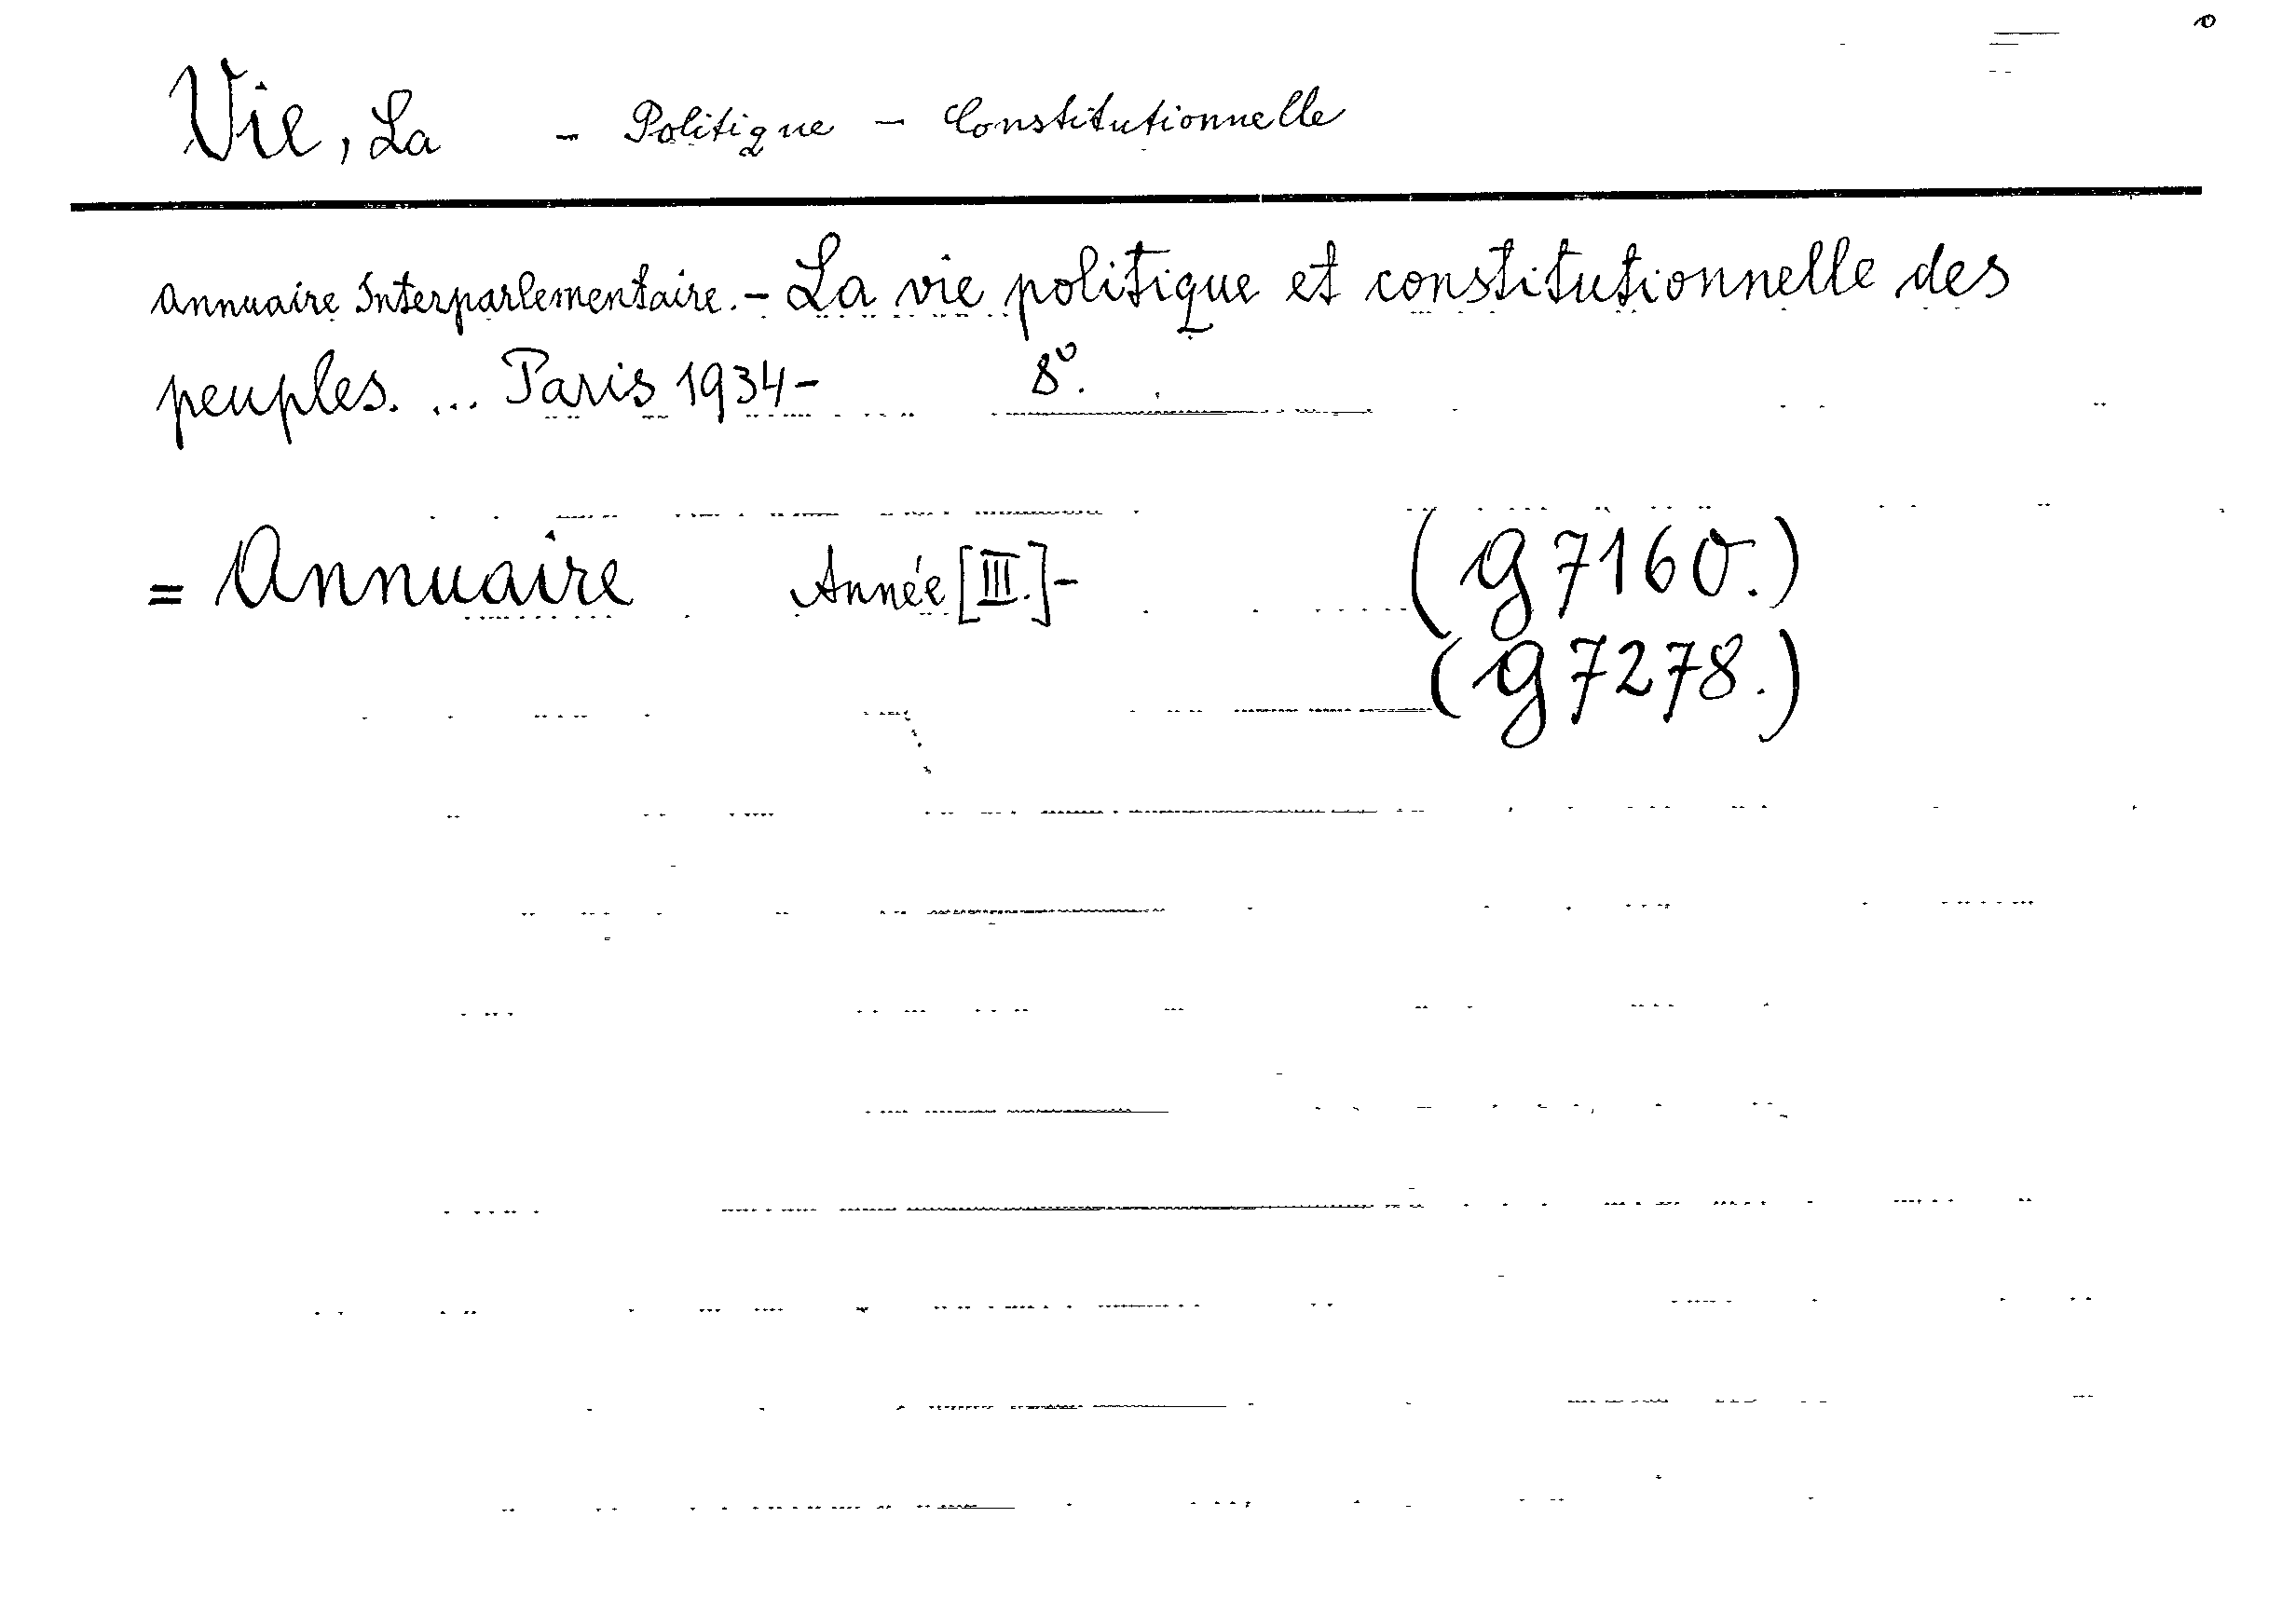 Vie, La - Politique - Constitutionnelle
Annuaire Interparlementaire. - La vie politique et constitutionnelle des
peuples. ... Paris 1934- 8º.
= Annuaire Année [III.]- (g 7160.)
(g 7278.)